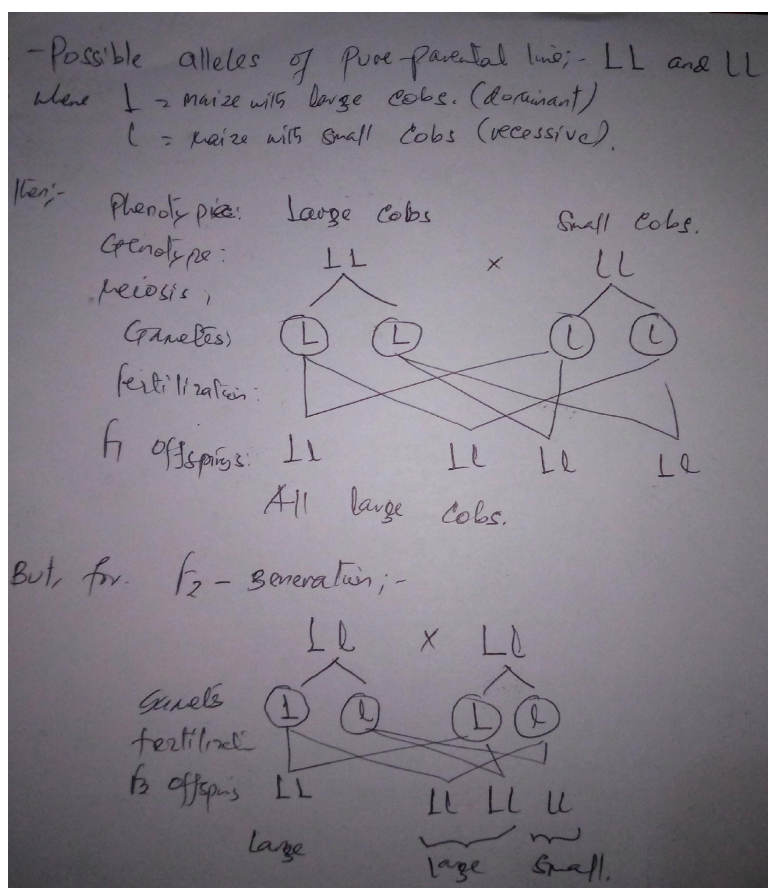 -Possible alleles of pure-parental line;- LL and ll
where L = maize with large cobs. (dominant)
l = maize with small cobs (recessive).
then;-
Phenotypic: Large cobs Small cobs.
Genotype: LL × ll
Meiosis,
Gametes; L L l l
fertilization:
f1 offsprings: Ll Ll Ll Ll
All large cobs.
But, for f2 - generation;-
Ll × Ll
Gamets L l L l
fertilizati
offspring LL Ll Ll ll
Large Large Small.